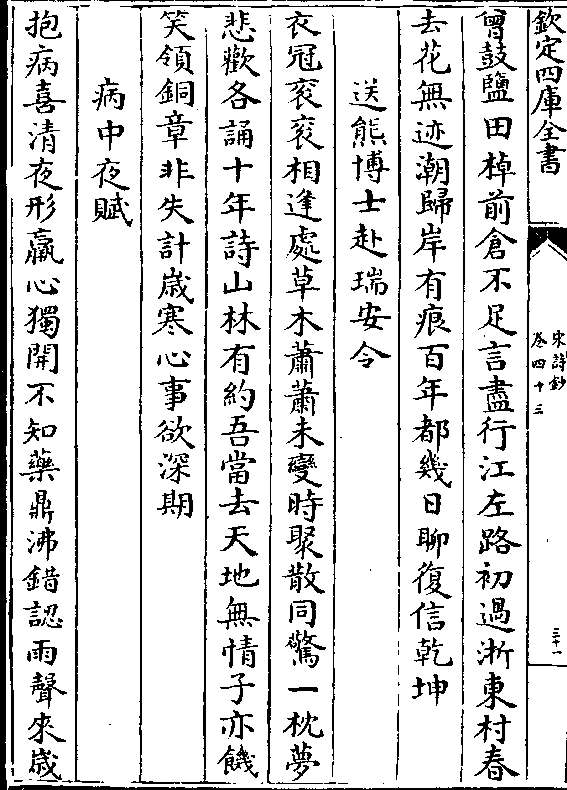 欽定四庫全書
宋詩鈔
卷四十三
三十一
曾鼓鹽田棹前倉不足言盡行江左路初過浙東村春
去花無迹潮歸岸有痕百年都幾日聊復信乾坤
送熊博士赴瑞安令
衣冠衮衮相逢處草木蕭蕭未變時聚散同驚一枕夢
悲歡各誦十年詩山林有約吾當去天地無情子亦饑
笑領銅章非失計歳寒心事欲深期
病中夜賦
抱病喜清夜形羸心獨開不知藥鼎沸錯認雨聲來歳